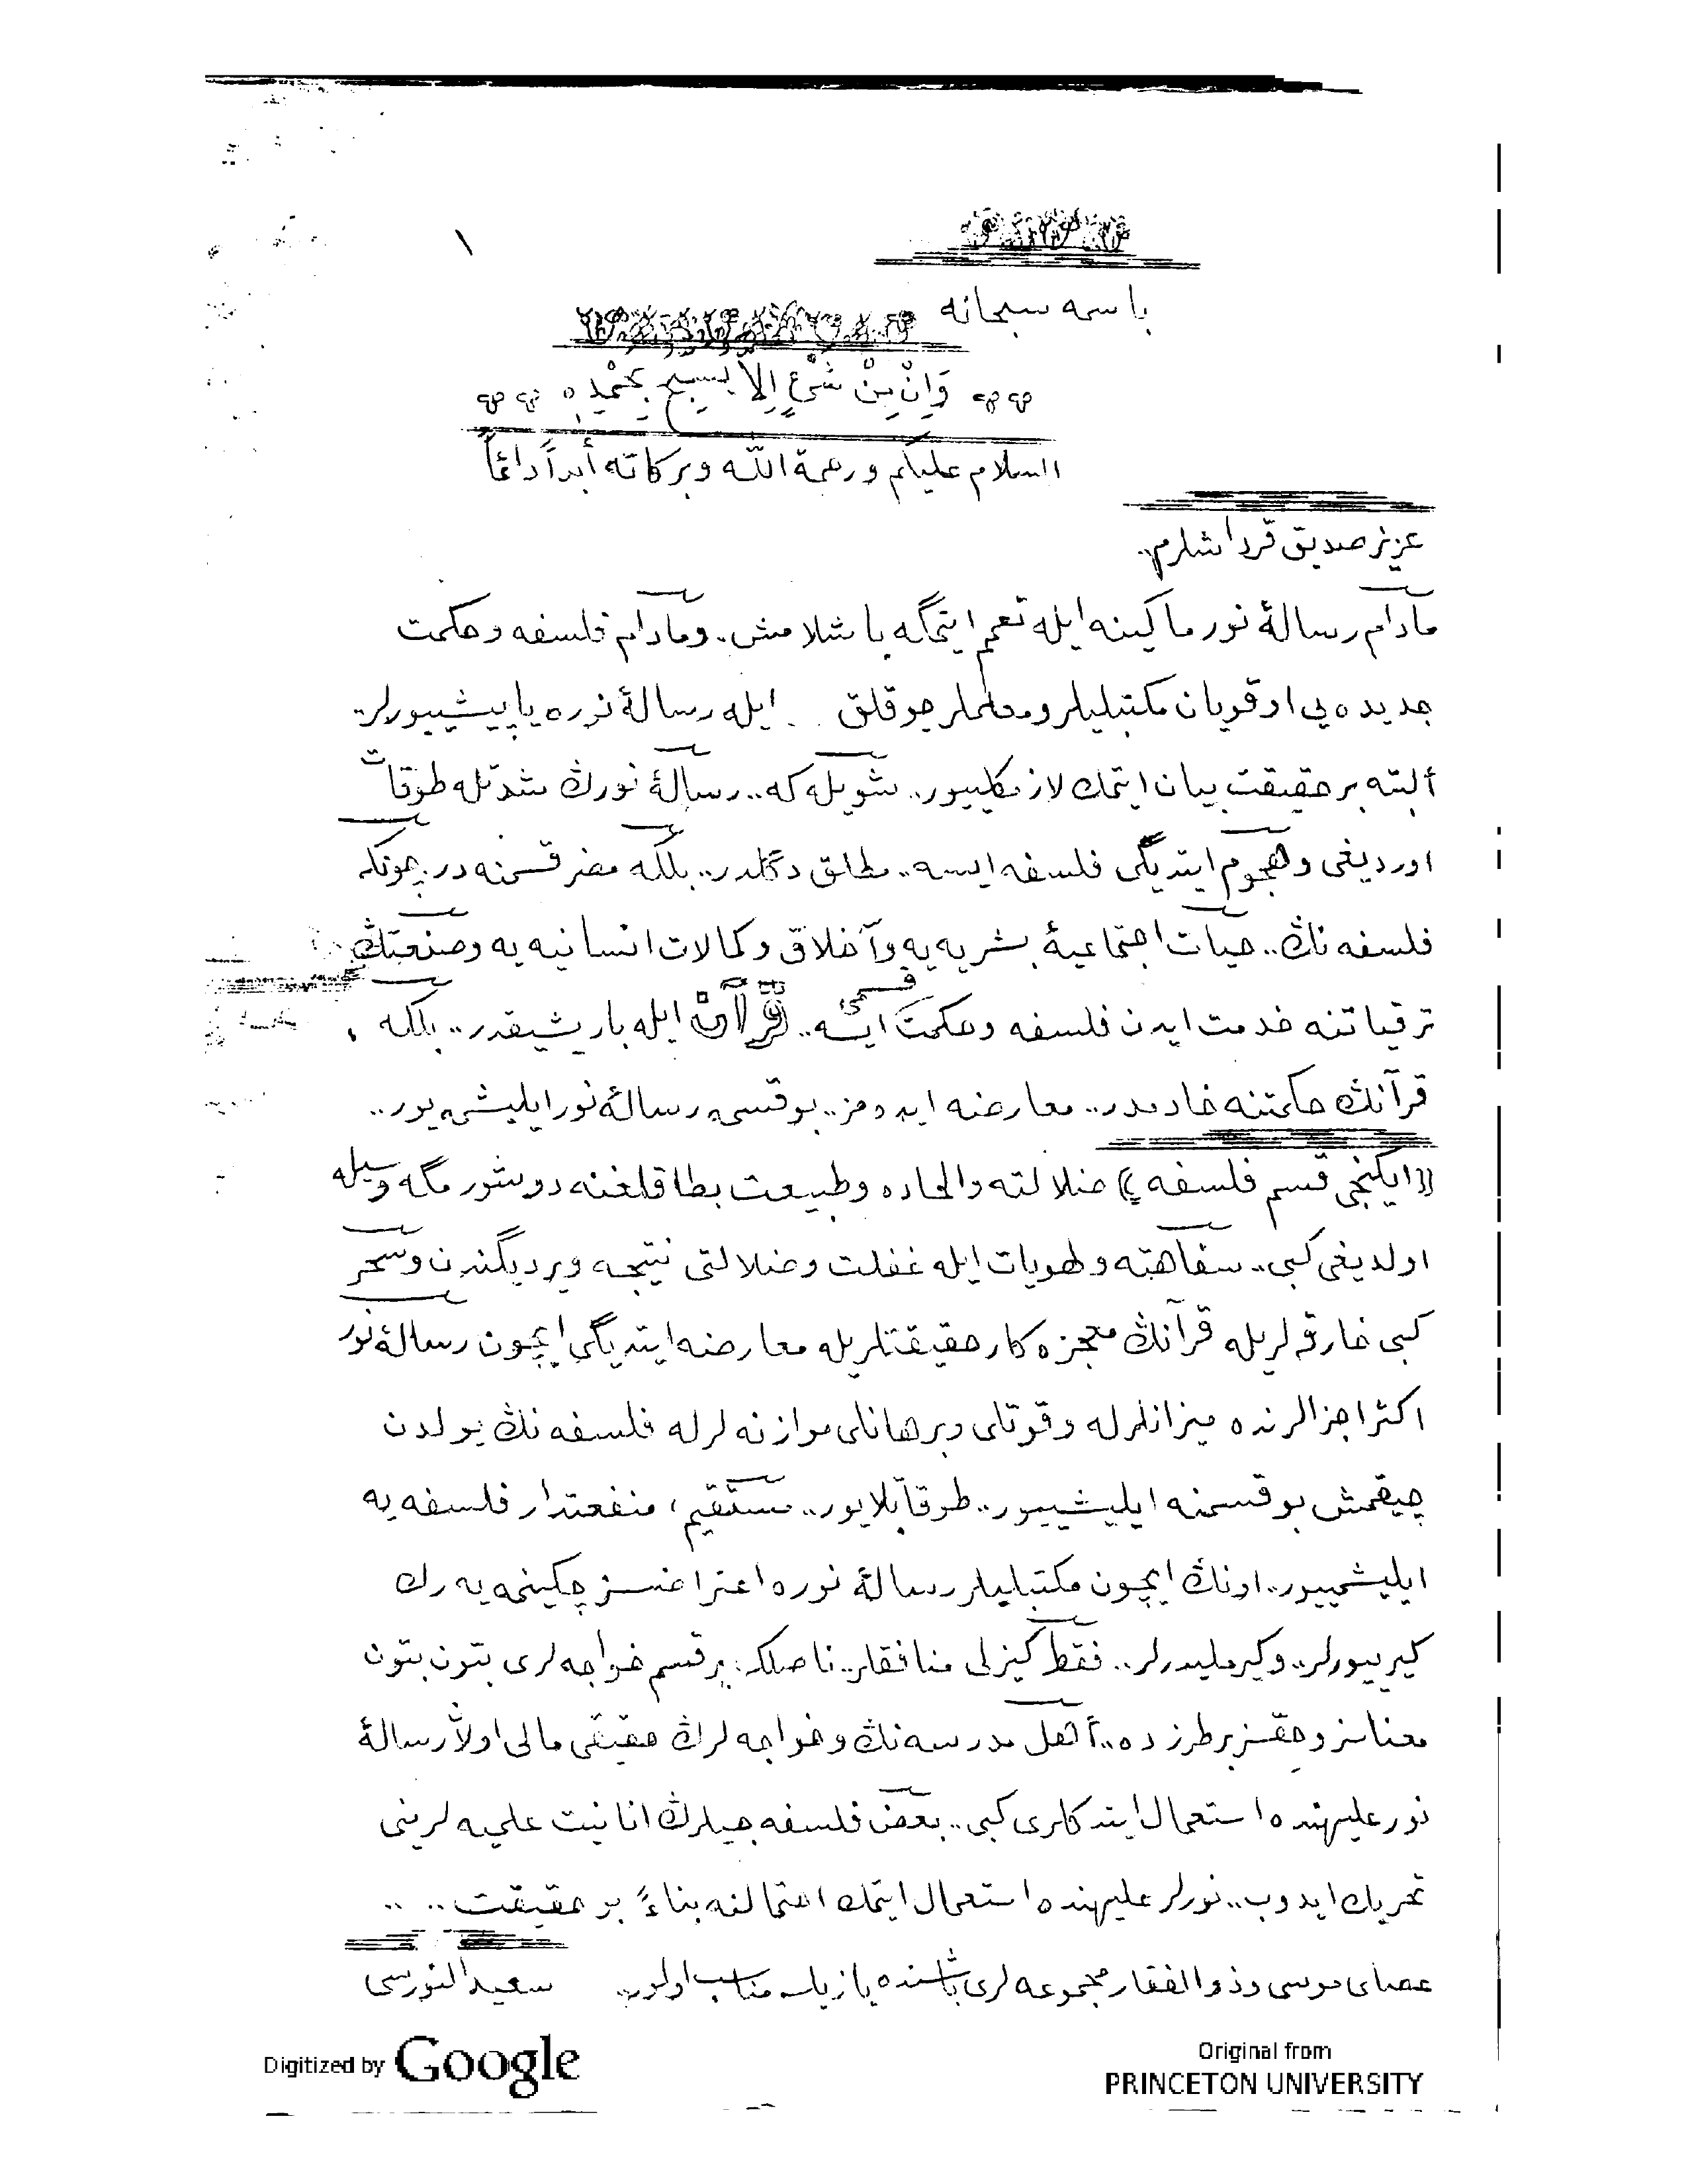 ١
باسمه سبحانه
وَاِنْ مِنْ شَىْءٍ اِلاَّ يسبح بِحَمْدِه
السلام عليكم ورحمة اللّه وبركاته أبداً دائماً
عزيز صديق قرداشلرم.
مادام رسالۀ نور ماكينه ايله تعمم ايتمگه باشلامش. ومادام فلسفه وحكمت
جديده يى اوقويان مكتبليلر ومعلملر چوقلق .. ايله رسالۀ نوره ياپيشييورلر..
ألبته بر حقيقت بيان ايتمك لازمكلييور.. شويله كه.. رسالۀ نورڭ شدتله طوقات
اورديغى وهجوم ايتديگى فلسفه ايسه.. مطلق دگلدر.. بلكه مضر قسمنه در. چونكه
فلسفه نڭ.. حيات اجتماعيۀ بشريه يه وآخلاق وكمالات انسانيه يه وصنعتڭ
ترقياتنه خدمت ايدن فلسفه وحكمت قسمى ايسه.. قرآن ايله باريشيقدر.. بلكه
قرآنڭ حكمتنه خادمدر.. معارضه ايده مز.. بو قسمى رسالۀ نور ايليشميور..
((ايكنجى قسم فلسفه)) ضلالته والحاده وطبيعت بطاقلغنه دوشورمگه وسيله
اولديغى كبى.. سفاهته ولهويات ايله غفلت وضلالتى نتيجه ويرديگندن وسحر
كبى خارقه لريله قرآنڭ معجزه كار حقيقتلريله معارضه ايتديگى ايچون رسالۀ نور
اكثر اجزالرنده ميزانلرله وقوتلى وبرهانلى موازنه لرله فلسفه نڭ يولدن
چيقمش بو قسمنه ايليشييور.. طوقاتلايور.. مستقيم، منفعتدار فلسفه يه
ايليشمييور.. اونڭ ايچون مكتبليلر رسالۀ نوره اعتراضسز چكينمه يه رك
كيرييورلر.. وكيرمليدرلر.. فقط كيزلى منافقلر.. ناصلكه بر قسم خواجه لرى بتون بتون
معناسز وحقسز بر طرزده.. أهل مدرسه نڭ وخواجه لرڭ حقيقى مالى اولان رسالۀ
نور عليهنده استعمال ايتدكلرى كبى.. بعض فلسفه جيلرڭ انانيت علميه لرينى
تحريك ايدوب.. نورلر عليهنده استعمال ايتمك احتمالنه بناءً بو حقيقت.. ..
عصاى موسى وذوالفقار مجموعه لرى باشنده يازيلسه مناسب اولور. سعيد النورسى
Digitized by Google
Original from
PRINCETON UNIVERSITY